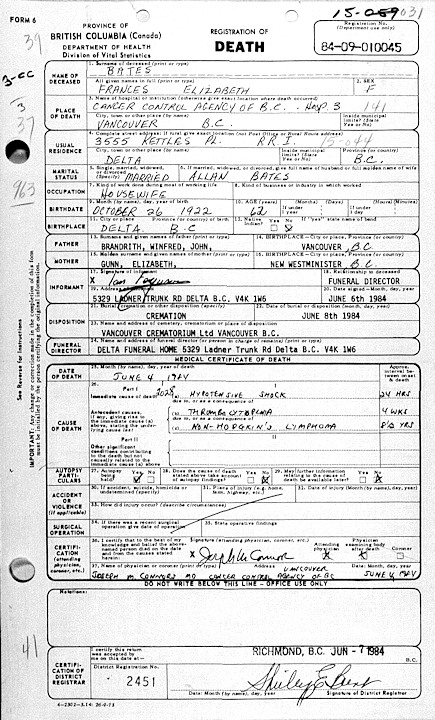 FORM 6
PROVINCE OF
BRITISH COLUMBIA (Canada)
DEPARTMENT OF HEALTH
Division of Vital Statistics
REGISTRATION OF
DEATH
Registration No.
(Department use only)
84-09-010045
39
NAME OF DECEASED
1. Surname of deceased (print or type)
BATES
All given names in full (print or type)
2. SEX
FRANCES ELIZABETH
F
PLACE OF DEATH
3. Name of hospital or institution (otherwise give exact location where death occurred)
CANCER CONTROL AGENCY OF B.C.
City, town or other place (by name)
Inside municipal limits?
VANCOUVER B.C.
USUAL RESIDENCE
4. Complete street address: If rural give exact location (not Post Office or Rural Route address)
3555 KETTLES
City, town or other place (by name)
Inside municipal limits?
Province (or country)
DELTA B.C.
MARITAL STATUS
5. Single, married, widowed, or divorced (Specify)
MARRIED
6. If married, widowed, or divorced, give full name of husband or full maiden name of wife
ALLAN BATES
OCCUPATION
7. Kind of work done during most of working life
8. Kind of business or industry in which worked
HOUSEWIFE
BIRTHDATE
9. Month (by name), day, year of birth
10. AGE (years)
OCTOBER 26 1922
62
If under 1 year
(Months)
(Days)
If under 1 day
(Hours)
(Minutes)
BIRTHPLACE
11. City or place
Province (or country) of birth
DELTA B.C
12. Native Indian?
Yes
No
If "yes" state name of band
FATHER
13. Surname and given names of father (print or type)
14. BIRTHPLACE - City or place, Province (or country)
BRANDRITH, WINFRED, JOHN,
VANCOUVER B.C.
MOTHER
15. Maiden surname and given names of mother (print or type)
16. BIRTHPLACE - City or place, Province (or country)
GUNN, ELIZABETH,
NEW WESTMINISTER B.C.
INFORMANT
17. Signature of informant
18. Relationship to deceased
X
FUNERAL DIRECTOR
19. Address
20. Date signed - Month, day, year
5329 LADNER TRUNK RD DELTA B.C. V4K 1W6
JUNE 6th 1984
DISPOSITION
21. Burial, cremation or other disposition (specify)
22. Date of burial or disposition (month, day, year)
CREMATION
JUNE 8th 1984
23. Name and address of cemetery, crematorium or place of disposition
VANCOUVER CREMATORIUM Ltd VANCOUVER B.C.
FUNERAL DIRECTOR
24. Name of funeral director (or person in charge of remains) (print or type)
DELTA FUNERAL HOME 5329 Ladner Trunk Rd Delta B.C. V4K 1W6
MEDICAL CERTIFICATE OF DEATH
DATE OF DEATH
25. Month (by name), day, year of death
JUNE 4 1984
Approx. interval between onset & death
CAUSE OF DEATH
26. Part I
Immediate cause of death
(a) HYPOTENSIVE SHOCK
24 HRS
due to, or as a consequence of
Antecedent causes, if any, giving rise to the immediate cause (a) above, stating the underlying cause last
(b) THROMBOCYTOPENIA
4 WKS
due to, or as a consequence of
(c) NON-HODGKIN'S LYMPHOMA
Part II
Other significant conditions contributing to the death but not causally related to the immediate cause (a) above
AUTOPSY PARTICULARS
27. Autopsy being held?
Yes
No
28. Does the cause of death stated above take account of autopsy findings?
Yes
No
29. May further information relating to the cause of death be available later?
Yes
No
ACCIDENT OR VIOLENCE
(If applicable)
30. If accident, suicide, homicide or undetermined (specify)
31. Place of injury (e.g. home, farm, highway, etc.)
32. Date of injury (Month (by name), day, year)
33. How did injury occur? (describe circumstances)
SURGICAL OPERATION
34. If there was a recent surgical operation give date of operation
35. State operative findings
CERTIFICATION
(attending physician, coroner, etc.)
36. I certify that to the best of my knowledge and belief the above-named person died on the date and from the causes stated herein:
Signature (attending physician, coroner, etc.)
X
Attending physician
Physician examining body after death
Coroner
Address
Date: Month, day, year
VANCOUVER
JOSEPH M. CONNORS MD CANCER CONTROL AGENCY OF BC
JUNE 4, 1984
DO NOT WRITE BELOW THIS LINE - OFFICE USE ONLY
Notations:
41
CERTIFICATION OF DISTRICT REGISTRAR
I certify this return was accepted by me on this date at -
RICHMOND, B.C. JUN - 7 1984
B.C.
District Registration No.
2451
Date: Month (by name), day, year
Signature of District Registrar
See Reverse for Instructions
IMPORTANT: Any change or correction made in the completion of this form must be initialled by the person certifying the original information.